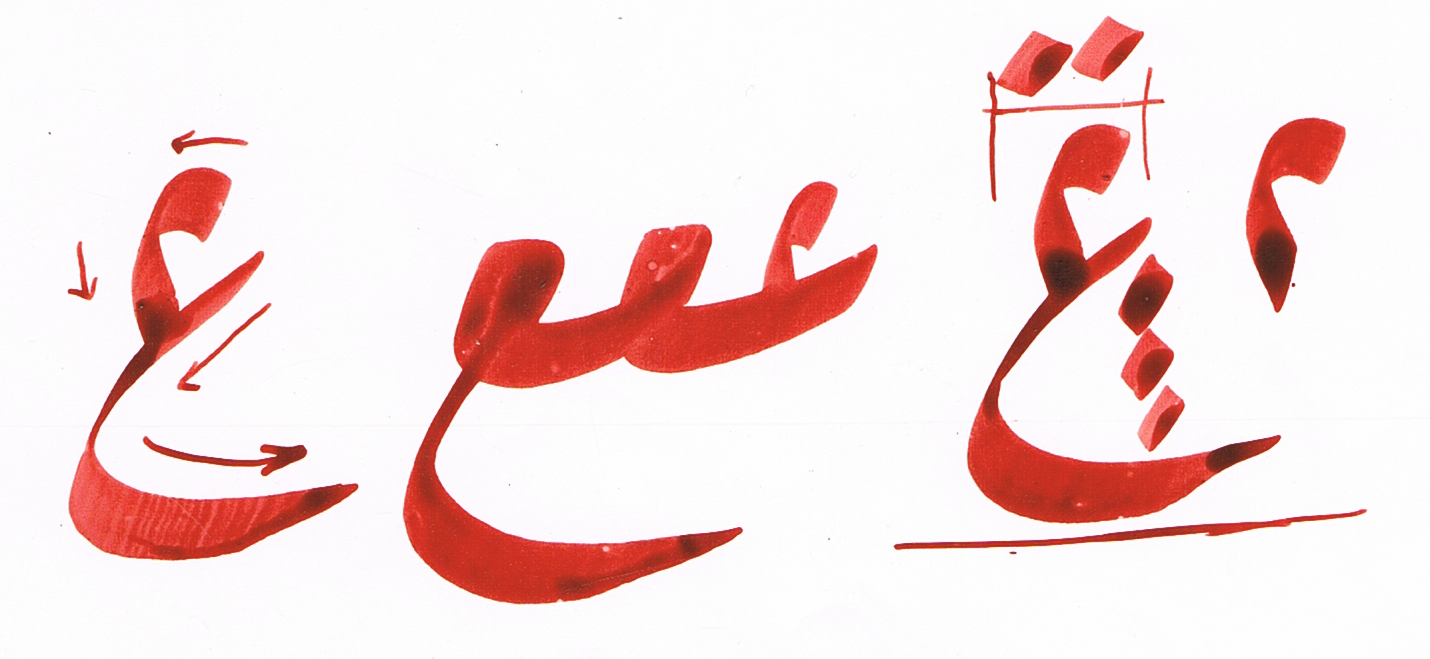 ع ععع ع